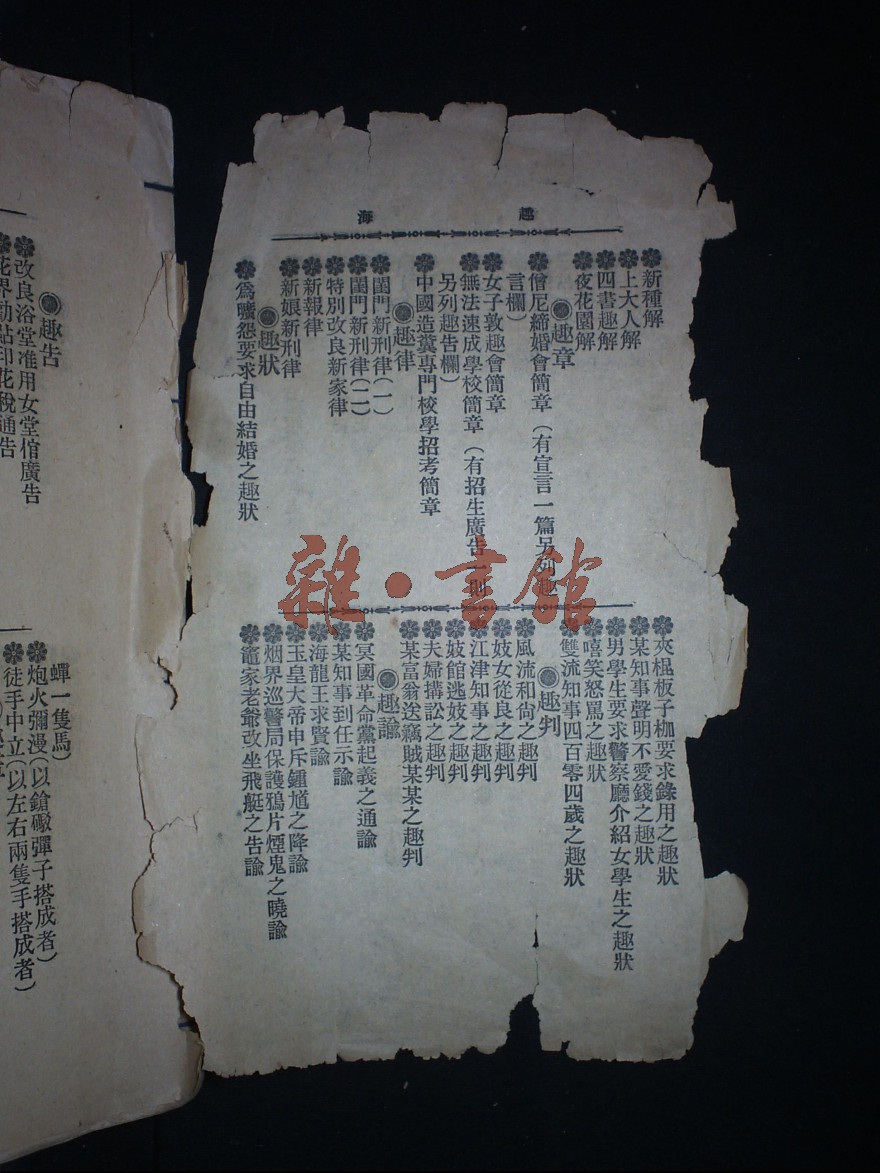 趣海
新種解
上大人解
四書趣解
夜花園解
趣章
僧尼締婚會簡章（有宣言一篇另列趣
言欄）
女子敦趣會簡章
無法速成學校簡章（有招生廣告一則
另列趣告欄）
中國造糞專門校學招考簡章
趣律
閨門新刑律（一）
閨門新刑律（二）
特別改良新家律
新報律
新娘新刑律
趣狀
爲曠怨要求自由結婚之趣狀
夾棍板子枷要求錄用之趣狀
某知事聲明不愛錢之趣狀
男學生要求警察廳介紹女學生之趣狀
嘻笑怒罵之趣狀
雙流知事四百零四歲之趣狀
趣判
風流和尙之趣判
妓女從良之趣判
江津知事之趣判
妓館逃妓之趣判
夫婦搆訟之趣判
某富翁送竊賊某某之趣判
趣諭
冥國革命黨起義之通諭
某知事到任示諭
海龍王求賢諭
玉皇大帝申斥鍾馗之降諭
烟界巡警局保護鴉片煙鬼之曉諭
竈家老爺改坐飛艇之告諭
趣告
改良浴堂准用女堂倌廣告
花界勸貼印花稅通告
蟬一隻馬）
炮火彌漫（以鎗礮彈子搭成者）
徒手中立（以左右兩隻手搭成者）
雜·書館